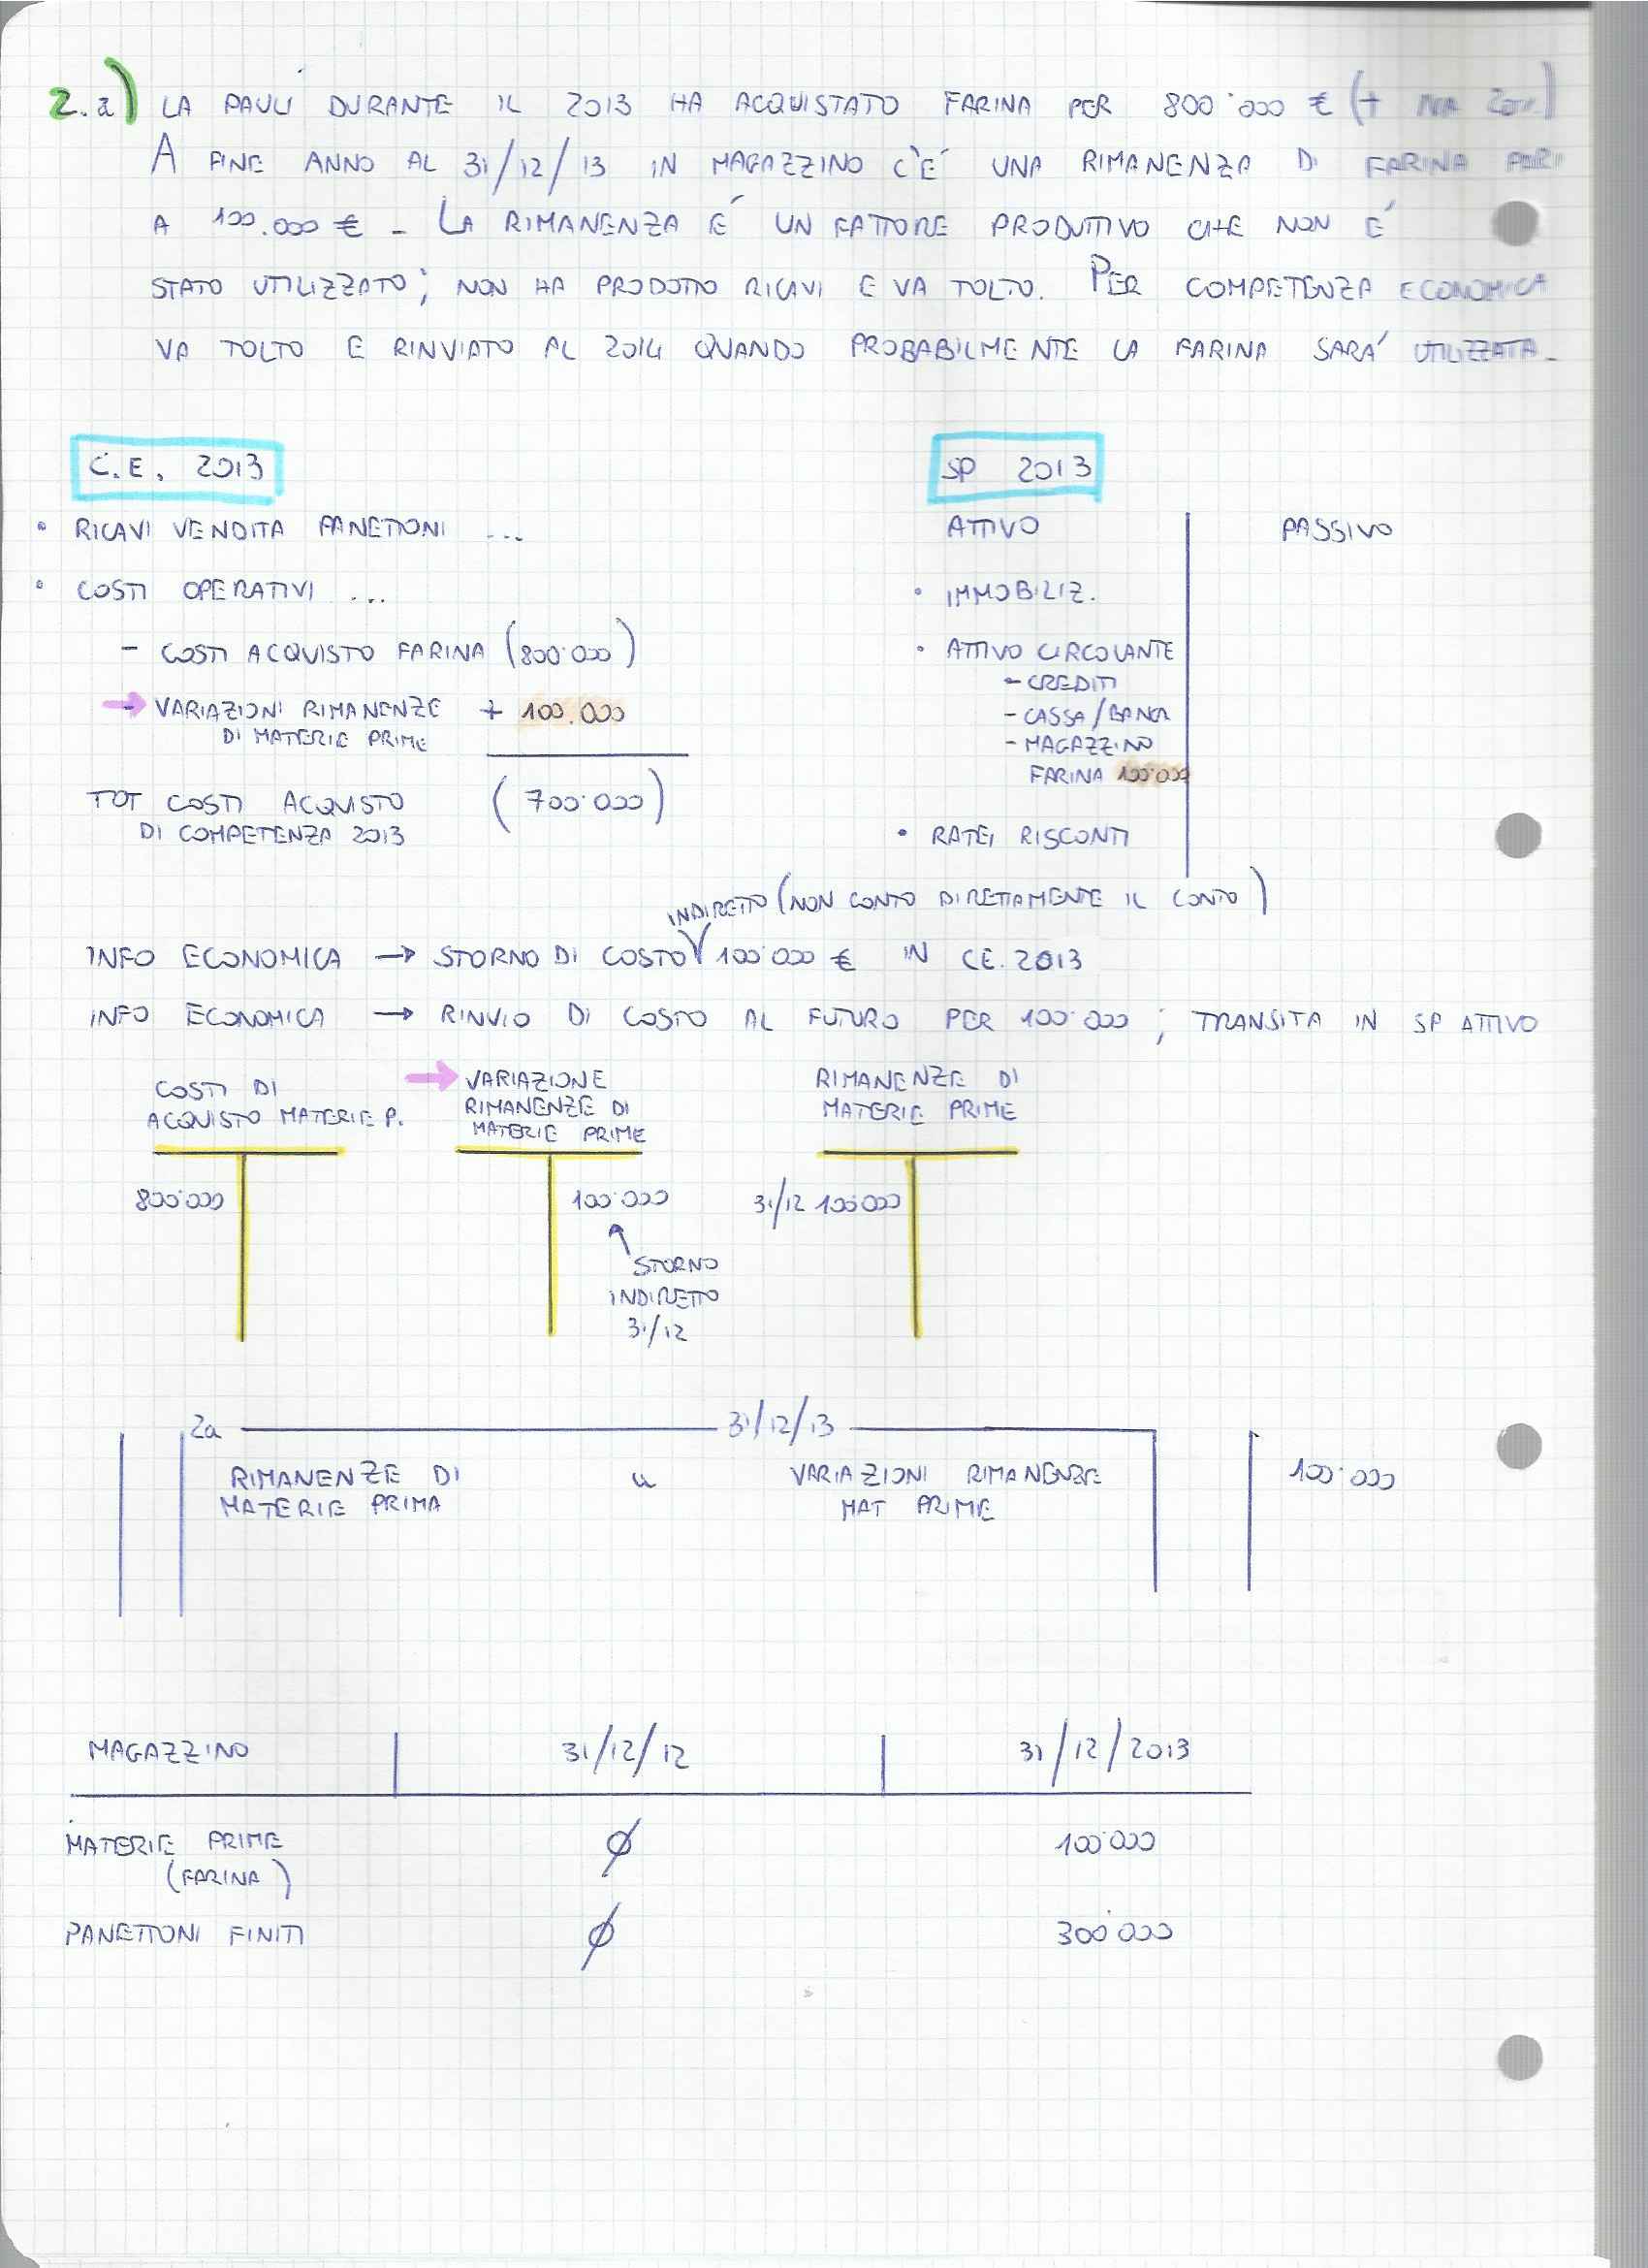 2.a) LA PAULI DURANTE IL 2013 HA ACQUISTATO FARINA PER 800'000 € (+ IVA
A FINE ANNO AL 31/12/13 IN MAGAZZINO C'È UNA RIMANENZA DI FARINA PARI
A 100.000 € - LA RIMANENZA È UN FATTORE PRODUTTIVO CHE NON È
STATO UTILIZZATO; NON HA PRODOTTO RICAVI E VA TOLTO. PER COMPETENZA ECONOMICA
VA TOLTO E RINVIATO AL 2014 QUANDO PROBABILMENTE LA FARINA SARÀ UTILIZZATA.
C.E. 2013
• RICAVI VENDITA PANETTONI ...
• COSTI OPERATIVI ...
- COSTI ACQUISTO FARINA (800'000)
→ VARIAZIONI RIMANENZE + 100.000
DI MATERIE PRIME
TOT COSTI ACQUISTO (700'000)
DI COMPETENZA 2013
SP 2013
ATTIVO PASSIVO
• IMMOBILIZ.
• ATTIVO CIRCOLANTE
- CREDITI
- CASSA/BANCA
- MAGAZZINO
FARINA 100'000
• RATEI RISCONTI
INDIRETTO (NON CONTO DIRETTAMENTE IL CONTO)
INFO ECONOMICA → STORNO DI COSTO 100'000 € IN CE. 2013
INFO ECONOMICA → RINVIO DI COSTO AL FUTURO PER 100'000; TRANSITA IN SP ATTIVO
COSTI DI
ACQUISTO MATERIE P.
800'000
→ VARIAZIONE
RIMANENZE DI
MATERIE PRIME
100'000
STORNO
INDIRETTO
31/12
RIMANENZE DI
MATERIE PRIME
31/12 100'000
2a 31/12/13
RIMANENZE DI a VARIAZIONI RIMANENZE 100'000
MATERIE PRIMA MAT PRIME
MAGAZZINO 31/12/12 31/12/2013
MATERIE PRIME ∅ 100'000
(FARINA)
PANETTONI FINITI ∅ 300'000